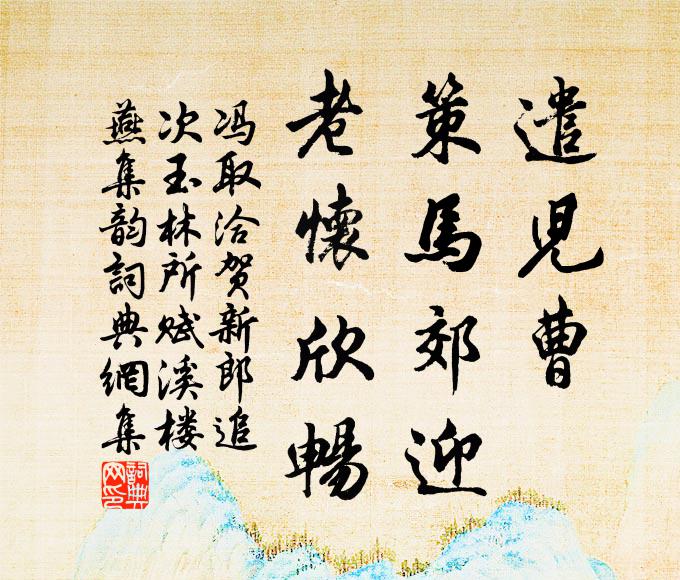 遣児曹
策馬郊迎
老懷欣暢
冯取洽贺新郎追
次玉林所赋溪楼
燕集韵詞典網集
詞典网印